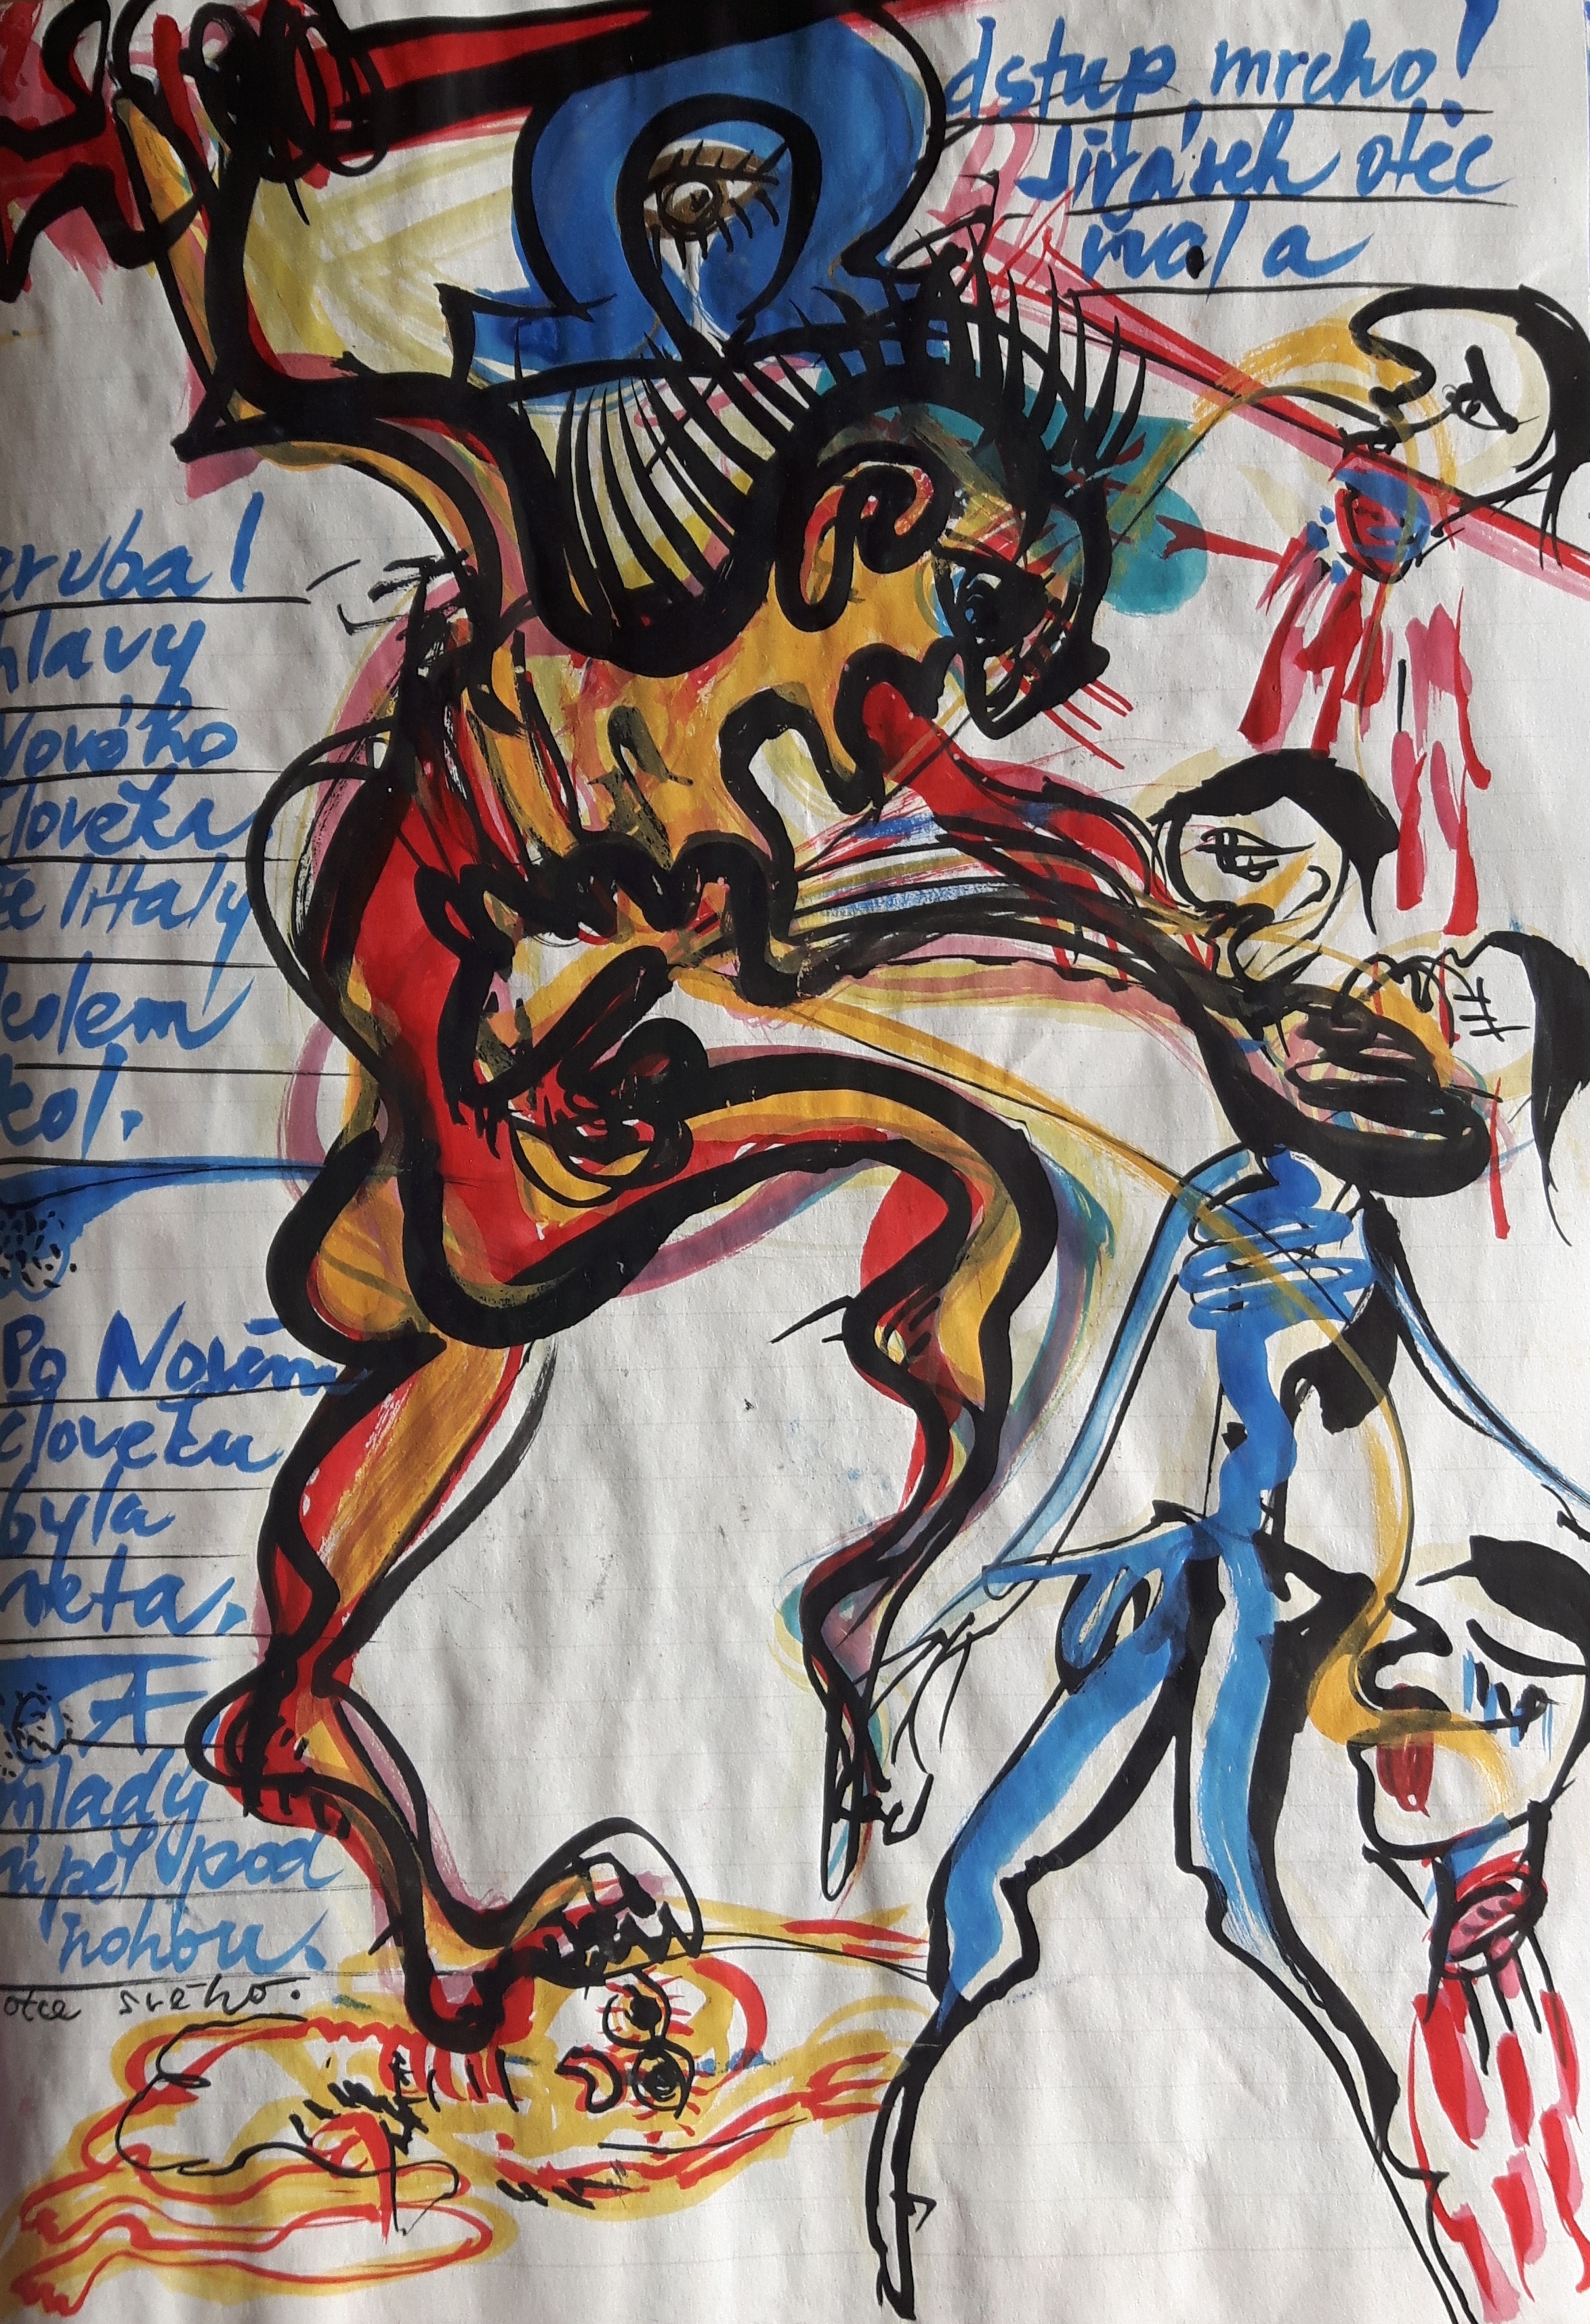 dstup mrcho!
Jirásek otec
řval a
zruba l
hlavy
Nového
člověka,
že lítaly
kolem
kol.
Po Novém
človeku
byla
veta.
A
mlady
úpěl pod
nohou.
otce svého.